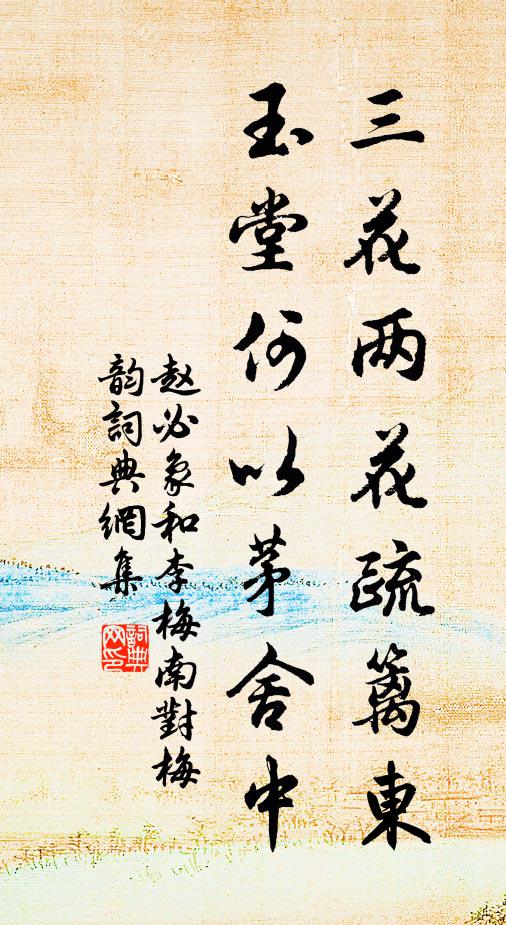 三花两花疏篱東
玉堂何以茅舍中
赵必象和李梅南對梅
韵詞典網集
詞典网印